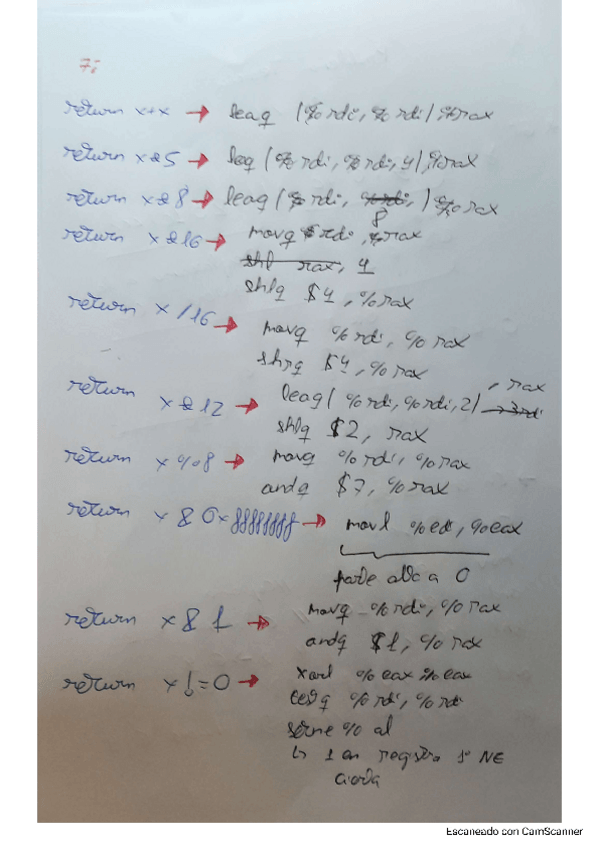 7:
return x+x → leaq (%rdi, %rdi), %rax
return x*5 → leq (%rdi, %rdi, 4), %rax
return x*8 → leaq (%rdi, 8) %rax
return x*16 → movq %rdi, %rax
shl rax, 4
shlq $4, %rax
return x/16 → movq %rdi, %rax
shrq $4, %rax
return x*12 → leaq( %rdi, %rdi, 2) , rax
shlq $2, rax
return x%8 → movq %rdi, %rax
andq $7, %rax
return x & 0xffffffff → movl %edi, %eax
parte alta a 0
return x & 1 → movq %rdi, %rax
andq $1, %rax
return x != 0 → xorl %eax %eax
testq %rdi, %rdi
setne %al
↳ 1 en registro si NE
Escaneado con CamScanner